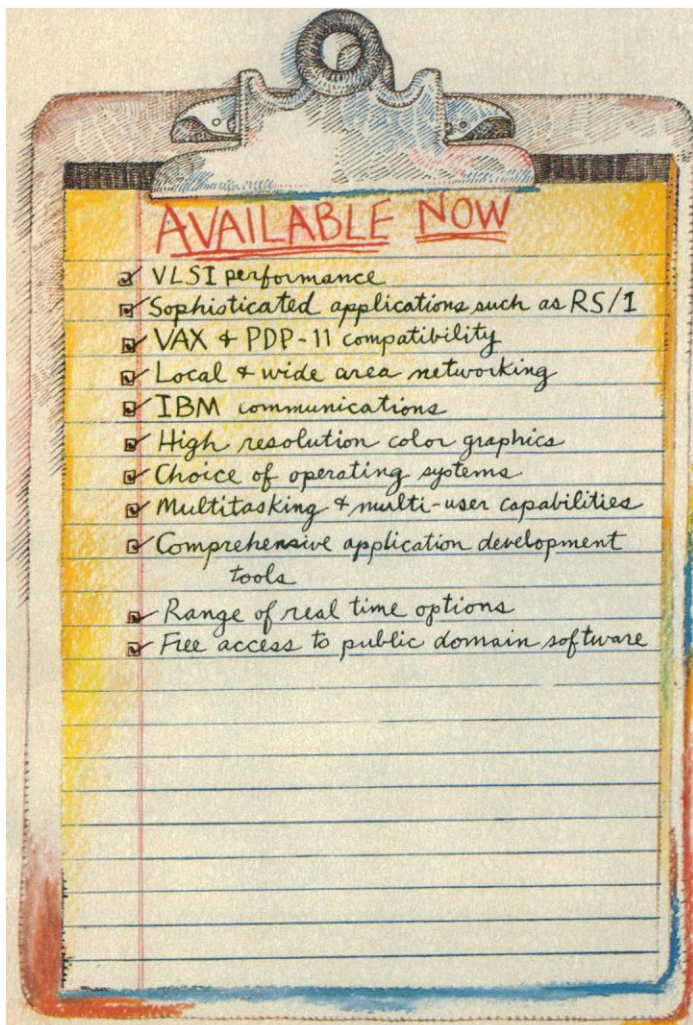 AVAILABLE NOW
VLSI performance
Sophisticated applications such as RS/1
VAX + PDP-11 compatibility
Local + wide area networking
IBM communications
High resolution color graphics
Choice of operating systems
Multitasking + multi-user capabilities
Comprehensive application development
tools
Range of real time options
Free access to public domain software